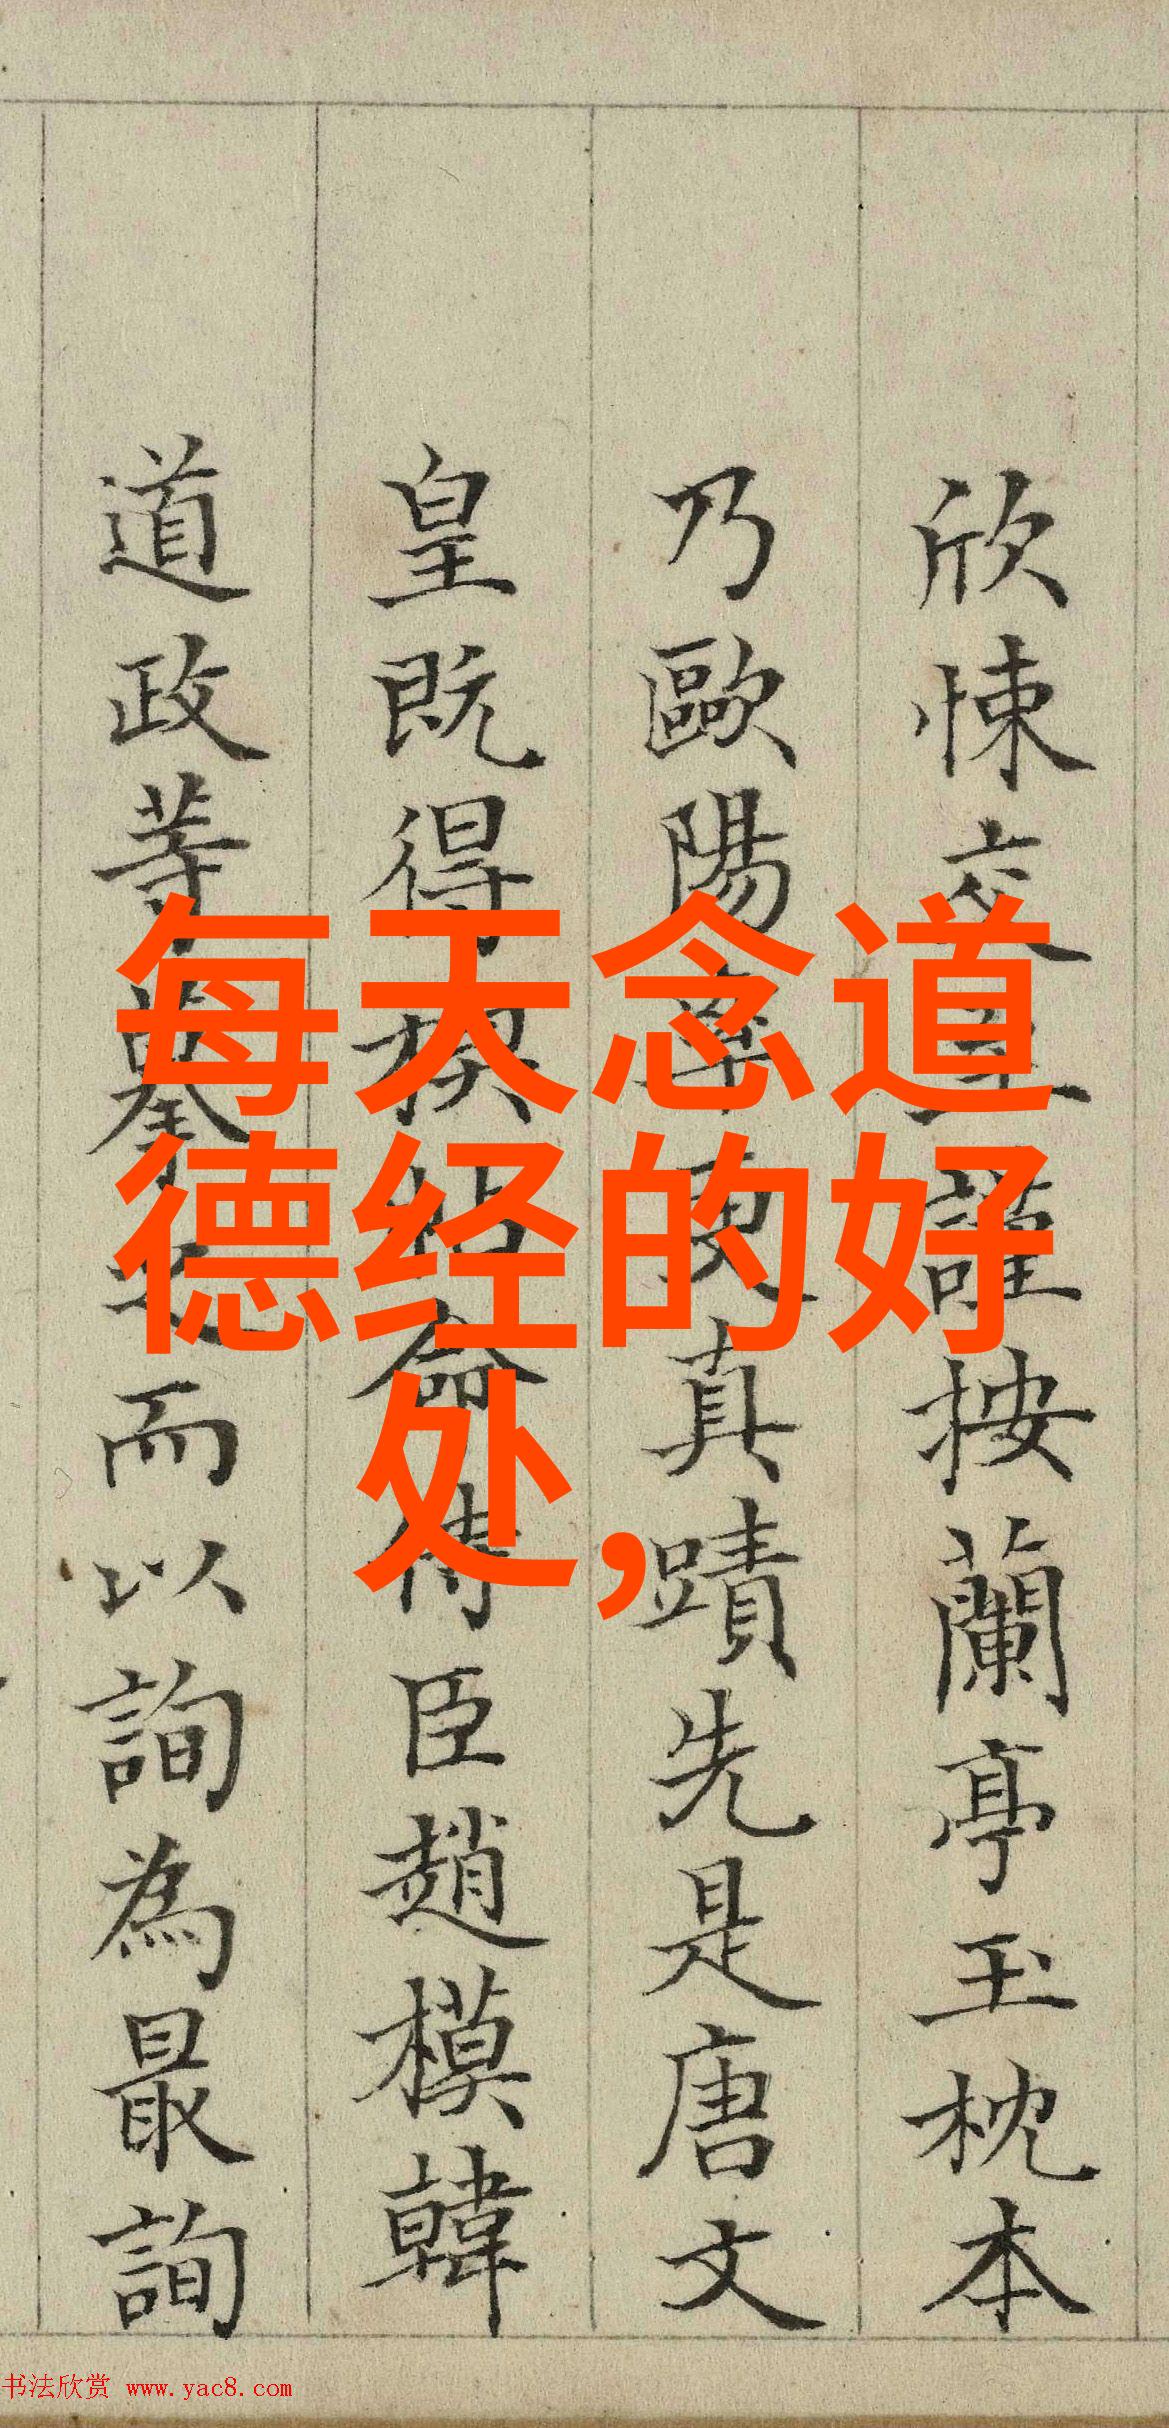 每天念道
德经的好
处,
欣悚交至謹按蘭亭玉枕本
乃歐陽率更真蹟先是唐文
皇既得禊帖命侍臣趙模韓
道政等摹之而以詢為最詢
书法欣赏 www.yac8.com